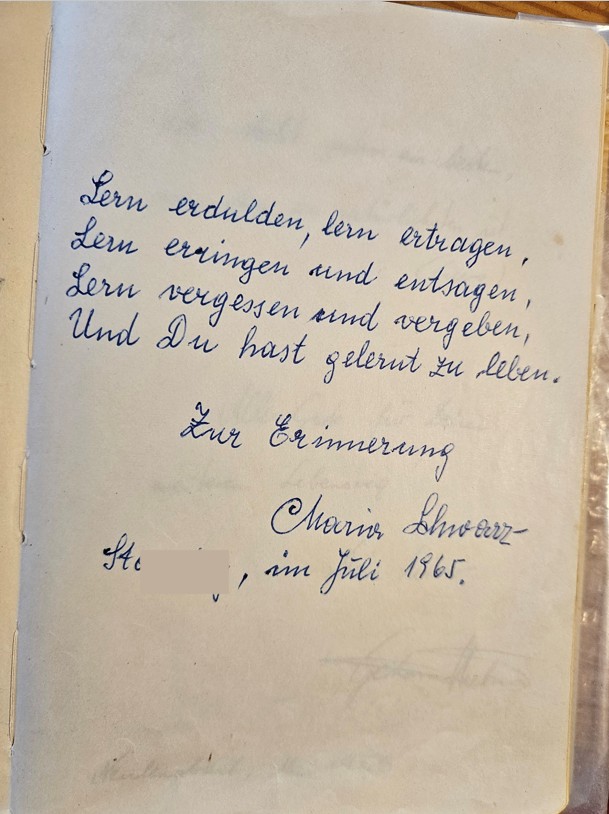 Lern erdulden, lern ertragen,
Lern erringen und entsagen,
Lern vergessen und vergeben,
Und Du hast gelernt zu leben.
Zur Erinnerung
Maria Schwarz
, im Juli 1965.